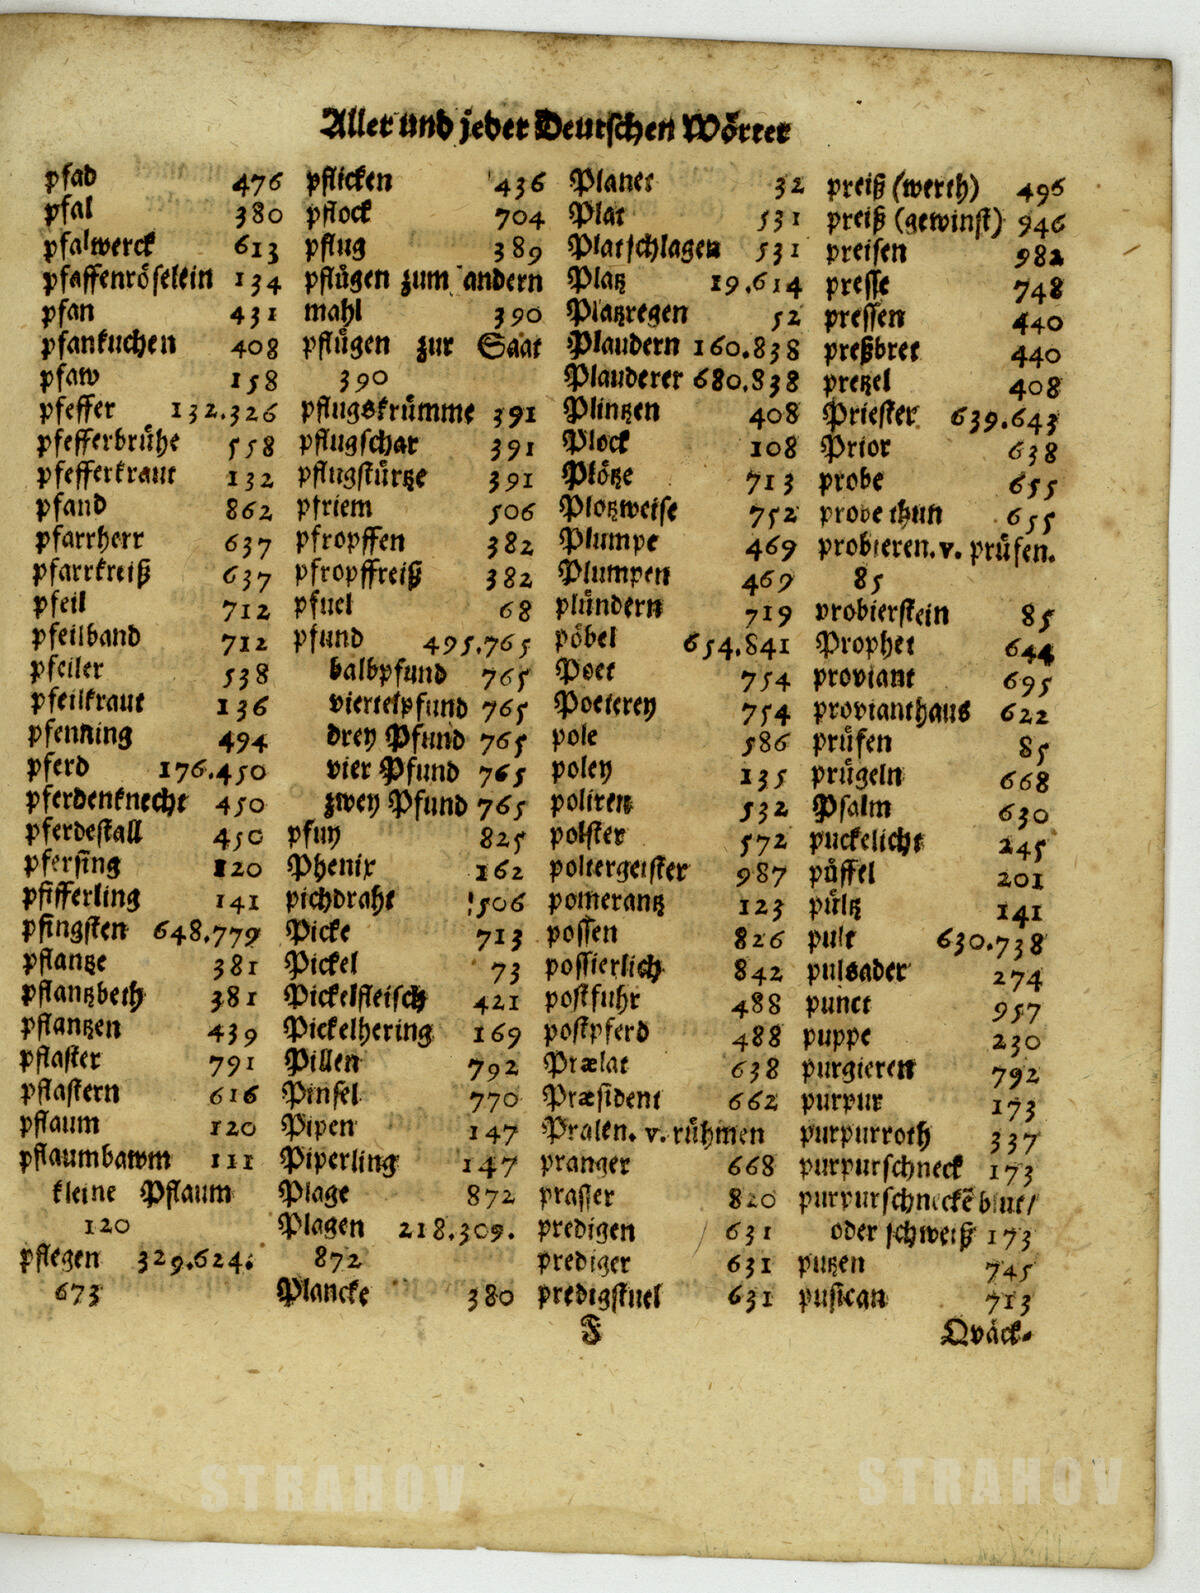 Aller und jeder Deutschen Wörter
pfad 476
pfal 380
pfalwerck 613
pfaffenröselein 134
pfan 431
pfankuchen 408
pfaw 158
pfeffer 132.326
pfefferbrühe 558
pfefferkraut 132
pfand 862
pfarrherr 637
pfarrkreiß 637
pfeil 712
pfeilband 712
pfeiler 538
pfeilkraut 136
pfenning 494
pferd 176.450
pferdenknecht 450
pferdestall 450
pfersing 120
pfifferling 141
pfingsten 648.779
pflantze 381
pflantzbeth 381
pflantzen 439
pflaster 791
pflastern 616
pflaum 120
pflaumbawm 111
kleine Pflaum
120
pflegen 329.624.
673
pflicken 436
pflock 704
pflug 389
pflügen zum andern
mahl 390
pflügen zur Saat
390
pflugskrümme 391
pflugschar 391
pflugstürtze 391
pfriem 506
pfropffen 382
pfropffreiß 382
pfuel 68
pfund 495.765
halbpfund 765
viertelpfund 765
drey Pfund 765
vier Pfund 765
zwey Pfund 765
pfuy 825
Phenix 162
pichdraht 506
Picke 713
Pickel 73
Pickelfleisch 421
Pickelhering 169
Pillen 792
Pinsel 770
Pipen 147
Piperling 147
Plage 872
Plagen 218.309.
872
Plancke 380
Planet 32
Plat 531
Platschlagen 531
Platz 19.614
Platzregen 52
Plaudern 160.838
Plauderer 680.838
Plintzen 408
Plock 108
Plötze 713
Plotzweise 752
Plumpe 469
Plumpen 469
plündern 719
pöbel 654.841
Poet 754
Poeterey 754
pole 586
poley 135
poliren 532
polster 572
poltergeister 987
pomerantz 123
possen 826
possierlich 842
postfuhr 488
postpferd 488
Prælat 638
Præsident 662
Pralen. v. rühmen
pranger 668
prasser 820
predigen 631
prediger 631
predigstuel 631
preiß (werth) 496
preiß (gewinst) 946
preisen 982
presse 748
pressen 440
preßbret 440
pretzel 408
Priester 639.643
Prior 638
probe 655
probe thun 655
probieren. v. prüfen.
85
probierstein 85
Prophet 644
proviant 695
provianthaus 622
prüfen 85
prügeln 668
Psalm 630
puckelicht 245
püffel 201
pültz 141
pult 630.738
pulsader 274
punct 957
puppe 230
purgieren 792
purpur 173
purpurroth 337
purpurschneck 173
purpurschneckē blut/
oder schweiß 173
putzen 745
pusican 713
F
Qväck-
STRAHOV
STRAHOV